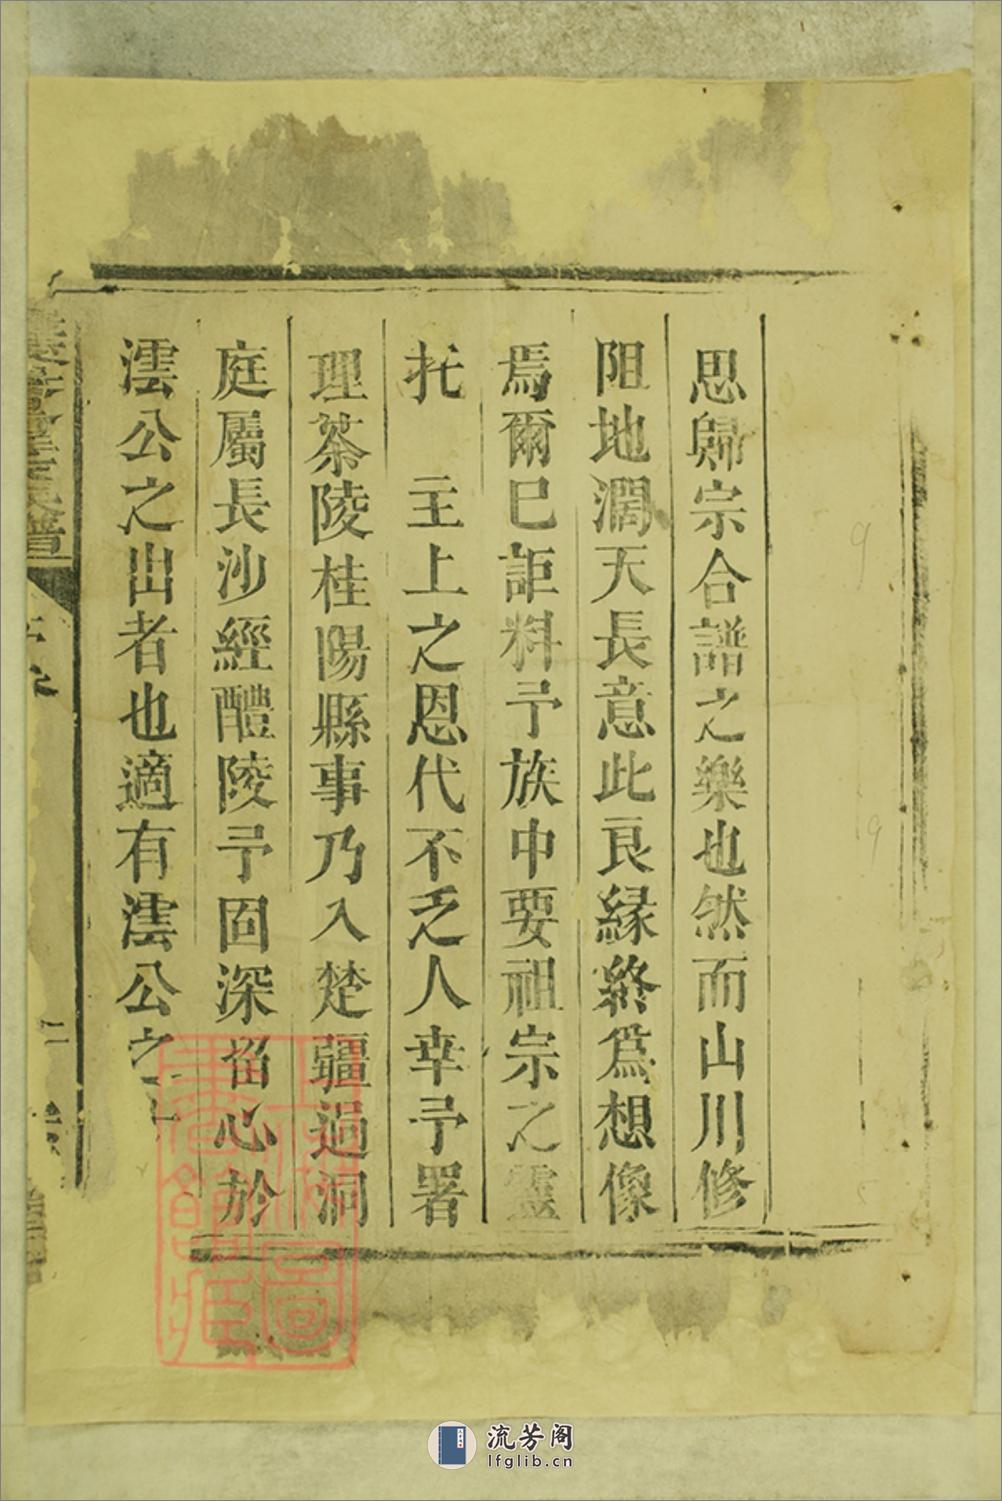 思歸宗合譜之樂也然而山川修
阻地濶天長意此良緣終爲想像
焉爾已詎料予族中要祖宗之靈
托　主上之恩代不乏人幸予署
理茶陵桂陽縣事乃入楚疆過洞
庭屬長沙經醴陵予固深留心於
澐公之出者也適有澐公之
氏譜
二
上海圖書館藏
流芳阁
lfglib.cn